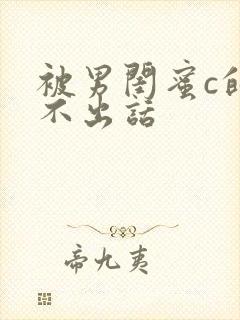 被男闺蜜c的
不出话
帝九夷